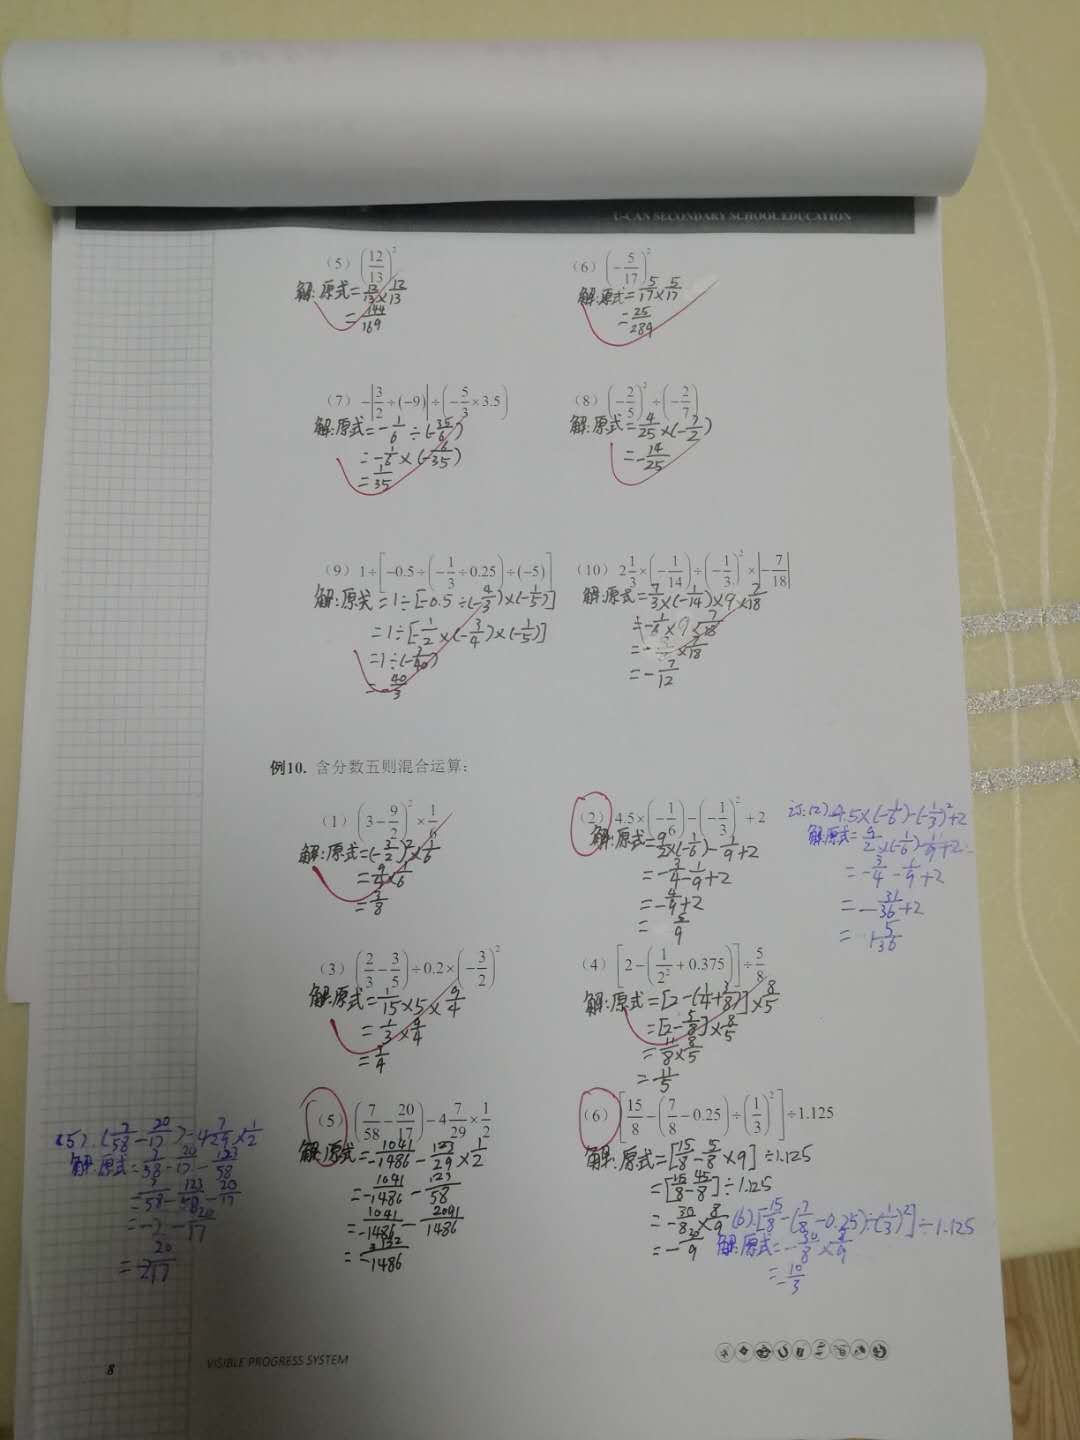 U-CAN SECONDARY SCHOOL EDUCATION
(5) (12/13)²
解:原式=12/13×12/13
=144/169
(6) (-5/17)²
解:原式=5/17×5/17
=25/289
(7) -|3/2÷(-9)|÷(-5/3×3.5)
解:原式=-1/6÷(-35/6)
=-1/6×(-6/35)
=1/35
(8) (-2/5)²÷(-2/7)
解:原式=4/25×(-7/2)
=-14/25
(9) 1÷[-0.5÷(-1/3÷0.25)÷(-5)]
解:原式=1÷[-0.5÷(-4/3)×(-1/5)]
=1÷[-1/2×(-3/4)×(-1/5)]
=1÷(-3/40)
=-40/3
(10) 2 1/3×(-1/14)÷(-1/3)²×|-7/18|
解:原式=7/3×(-1/14)×9×7/18
=-1/6×9×7/18
=-×7/18
=-7/12
例10. 含分数五则混合运算:
(1) (3-9/2)²×1/6
解:原式=(-3/2)²×1/6
=9/4×1/6
=3/8
(2) 4.5×(-1/6)-(-1/3)²+2
解:原式=9/2×(-1/6)-1/9+2
=-3/4-1/9+2
=-4/9+2
=5/9
订:(2) 4.5×(-1/6)-(-1/3)²+2
解:原式=9/2×(-1/6)-1/9+2
=-3/4-1/9+2
=-31/36+2
=1 5/36
(3) (2/3-3/5)÷0.2×(-3/2)²
解:原式=1/15×5×9/4
=1/3×9/4
=3/4
(4) [2-(1/2²+0.375)]÷5/8
解:原式=[2-(1/4+3/8)]×8/5
=[2-5/8]×8/5
=11/8×8/5
=11/5
(5) (7/58-20/17)-4 7/29×1/2
解:原式=-1041/1486-123/29×1/2
=-1041/1486-123/58
=-1041/1486-2091/1486
=-3132/1486
(5). (7/58-20/17)-4 7/29×1/2
解:原式=7/58-20/17-123/58
=7/58-123/58-20/17
=-2-20/17
=-2 20/17
(6) [15/8-(7/8-0.25)÷(1/3)²]÷1.125
解:原式=[15/8-5/8×9]÷1.125
=[15/8-45/8]÷1.125
=-30/8×8/9
=-30/9
(6).[15/8-(7/8-0.25)÷(1/3)²]÷1.125
解:原式=-30/8×8/9
=-10/3
8
VISIBLE PROGRESS SYSTEM